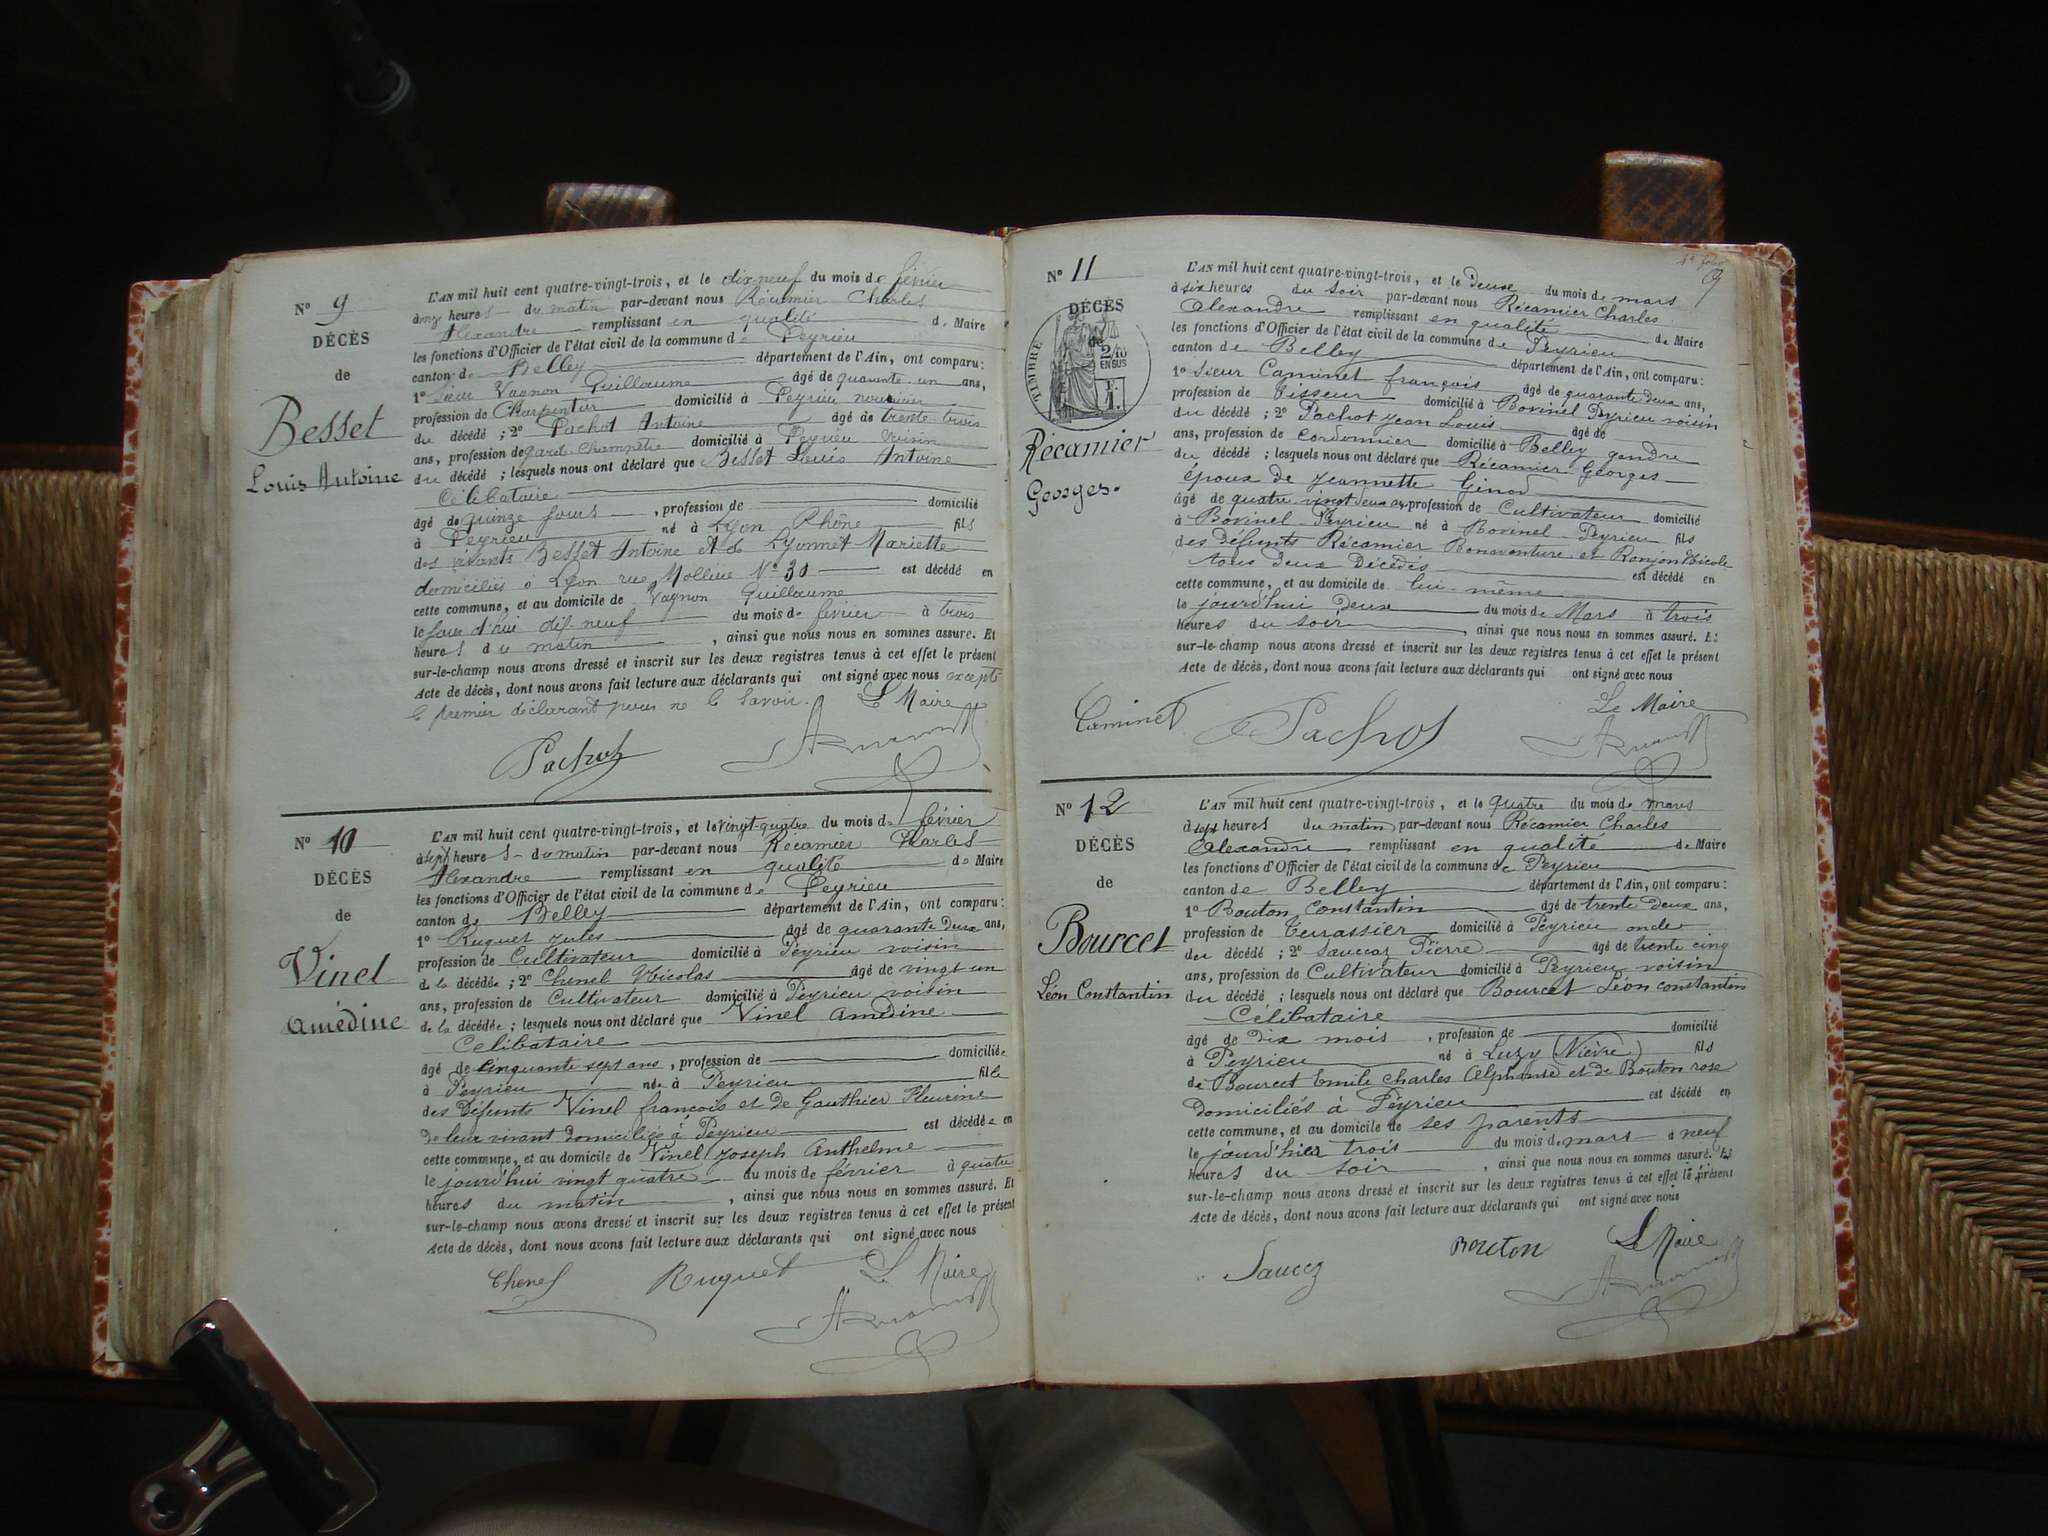 N° 9
DÉCÈS
de
Besset
Louis Antoine
L'AN mil huit cent quatre-vingt-trois, et le dix neuf du mois de février
à onze heures du matin par-devant nous Récamier Charles
Alexandre remplissant en qualité de Maire
les fonctions d'Officier de l'état civil de la commune de Peyrieu
canton de Belley département de l'Ain, ont comparu:
1° Sieur Vagnon Guillaume âgé de quarante-un ans,
profession de Charpentier domicilié à Peyrieu nourricier
du décédé ; 2° Pachot Antoine âgé de trente trois
ans, profession de garde champêtre domicilié à Peyrieu voisin
du décédé ; lesquels nous ont déclaré que Besset Louis Antoine
Célibataire
âgé de quinze jours , profession de domicilié
à Peyrieu né à Lyon Rhône fils
des vivants Besset Antoine et de Lyonnet Mariette
domiciliés à Lyon rue Molliere N° 30 est décédé en
cette commune, et au domicile de Vagnon Guillaume
le jour d'hui dix-neuf du mois de février à trois
heures du matin , ainsi que nous nous en sommes assuré. Et
sur-le-champ nous avons dressé et inscrit sur les deux registres tenus à cet effet le présent
Acte de décès, dont nous avons fait lecture aux déclarants qui ont signé avec nous excepté
le premier déclarant pour ne le savoir. Le Maire
Pachot
N° 10
DÉCÈS
de
Vinel
Amédine
L'AN mil huit cent quatre-vingt-trois, et le vingt-quatre du mois de février
à sept heures du matin par-devant nous Récamier Charles
Alexandre remplissant en qualité de Maire
les fonctions d'Officier de l'état civil de la commune de Peyrieu
canton de Belley département de l'Ain, ont comparu:
1° Ruguet Jules âgé de quarante deux ans,
profession de Cultivateur domicilié à Peyrieu voisin
de la décédée ; 2° Chenel Nicolas âgé de vingt un
ans, profession de Cultivateur domicilié à Peyrieu voisin
de la décédée ; lesquels nous ont déclaré que Vinel Amédine
Célibataire
âgé de cinquante sept ans , profession de domiciliée
à Peyrieu née à Peyrieu fille
des défunts Vinel françois et de Gauthier Fleurine
de leur vivant domiciliés à Peyrieu est décédée en
cette commune, et au domicile de Vinel Joseph Anthelme
le jourd'hui vingt quatre du mois de février à quatre
heures du matin , ainsi que nous nous en sommes assuré. Et
sur-le-champ nous avons dressé et inscrit sur les deux registres tenus à cet effet le présent
Acte de décès, dont nous avons fait lecture aux déclarants qui ont signé avec nous
Chenel Ruguet Le Maire
9
N° 11
DÉCÈS
de
TIMBRE
2/10
EN SUS
Récamier
Georges.
L'AN mil huit cent quatre-vingt-trois, et le deux du mois de mars
à six heures du soir par-devant nous Récamier Charles
Alexandre remplissant en qualité de Maire
les fonctions d'Officier de l'état civil de la commune de Peyrieu
canton de Belley département de l'Ain, ont comparu:
1° Sieur Caminet françois âgé de quarante deux ans,
profession de Tisseur domicilié à Bovinel Peyrieu voisin
du décédé ; 2° Pachot Jean Louis âgé de
ans, profession de Cordonnier domicilié à Belley gendre
du décédé ; lesquels nous ont déclaré que Récamier Georges
époux de Jeannette Ginod
âgé de quatre-vingt deux ans, profession de Cultivateur domicilié
à Bovinel-Peyrieu né à Bovinel-Peyrieu fils
des défunts Récamier Bonaventure et Ronjon Nicole
tous deux Décédés est décédé en
cette commune, et au domicile de lui-même
le jourd'hui deux du mois de Mars à trois
heures du soir , ainsi que nous nous en sommes assuré. Et
sur-le-champ nous avons dressé et inscrit sur les deux registres tenus à cet effet le présent
Acte de décès, dont nous avons fait lecture aux déclarants qui ont signé avec nous
Caminet Pachot Le Maire
N° 12
DÉCÈS
de
Bourcet
Léon Constantin
L'AN mil huit cent quatre-vingt-trois, et le quatre du mois de mars
à sept heures du matin par-devant nous Récamier Charles
Alexandre remplissant en qualité de Maire
les fonctions d'Officier de l'état civil de la commune de Peyrieu
canton de Belley département de l'Ain, ont comparu:
1° Bouton Constantin âgé de trente deux ans,
profession de Terrassier domicilié à Peyrieu oncle
du décédé ; 2° Sauccaz Pierre âgé de trente cinq
ans, profession de Cultivateur domicilié à Peyrieu voisin
du décédé ; lesquels nous ont déclaré que Bourcet Léon constantin
Célibataire
âgé de dix mois , profession de domicilié
à Peyrieu né à Luzy (Nièvre) fils
de Bourcet Emile Charles Alphonse et de Bouton rose
domiciliés à Peyrieu est décédé en
cette commune, et au domicile de ses parents
le jourd'hier trois du mois de mars à neuf
heures du soir , ainsi que nous nous en sommes assuré. Et
sur-le-champ nous avons dressé et inscrit sur les deux registres tenus à cet effet le présent
Acte de décès, dont nous avons fait lecture aux déclarants qui ont signé avec nous
Bouton Le Maire